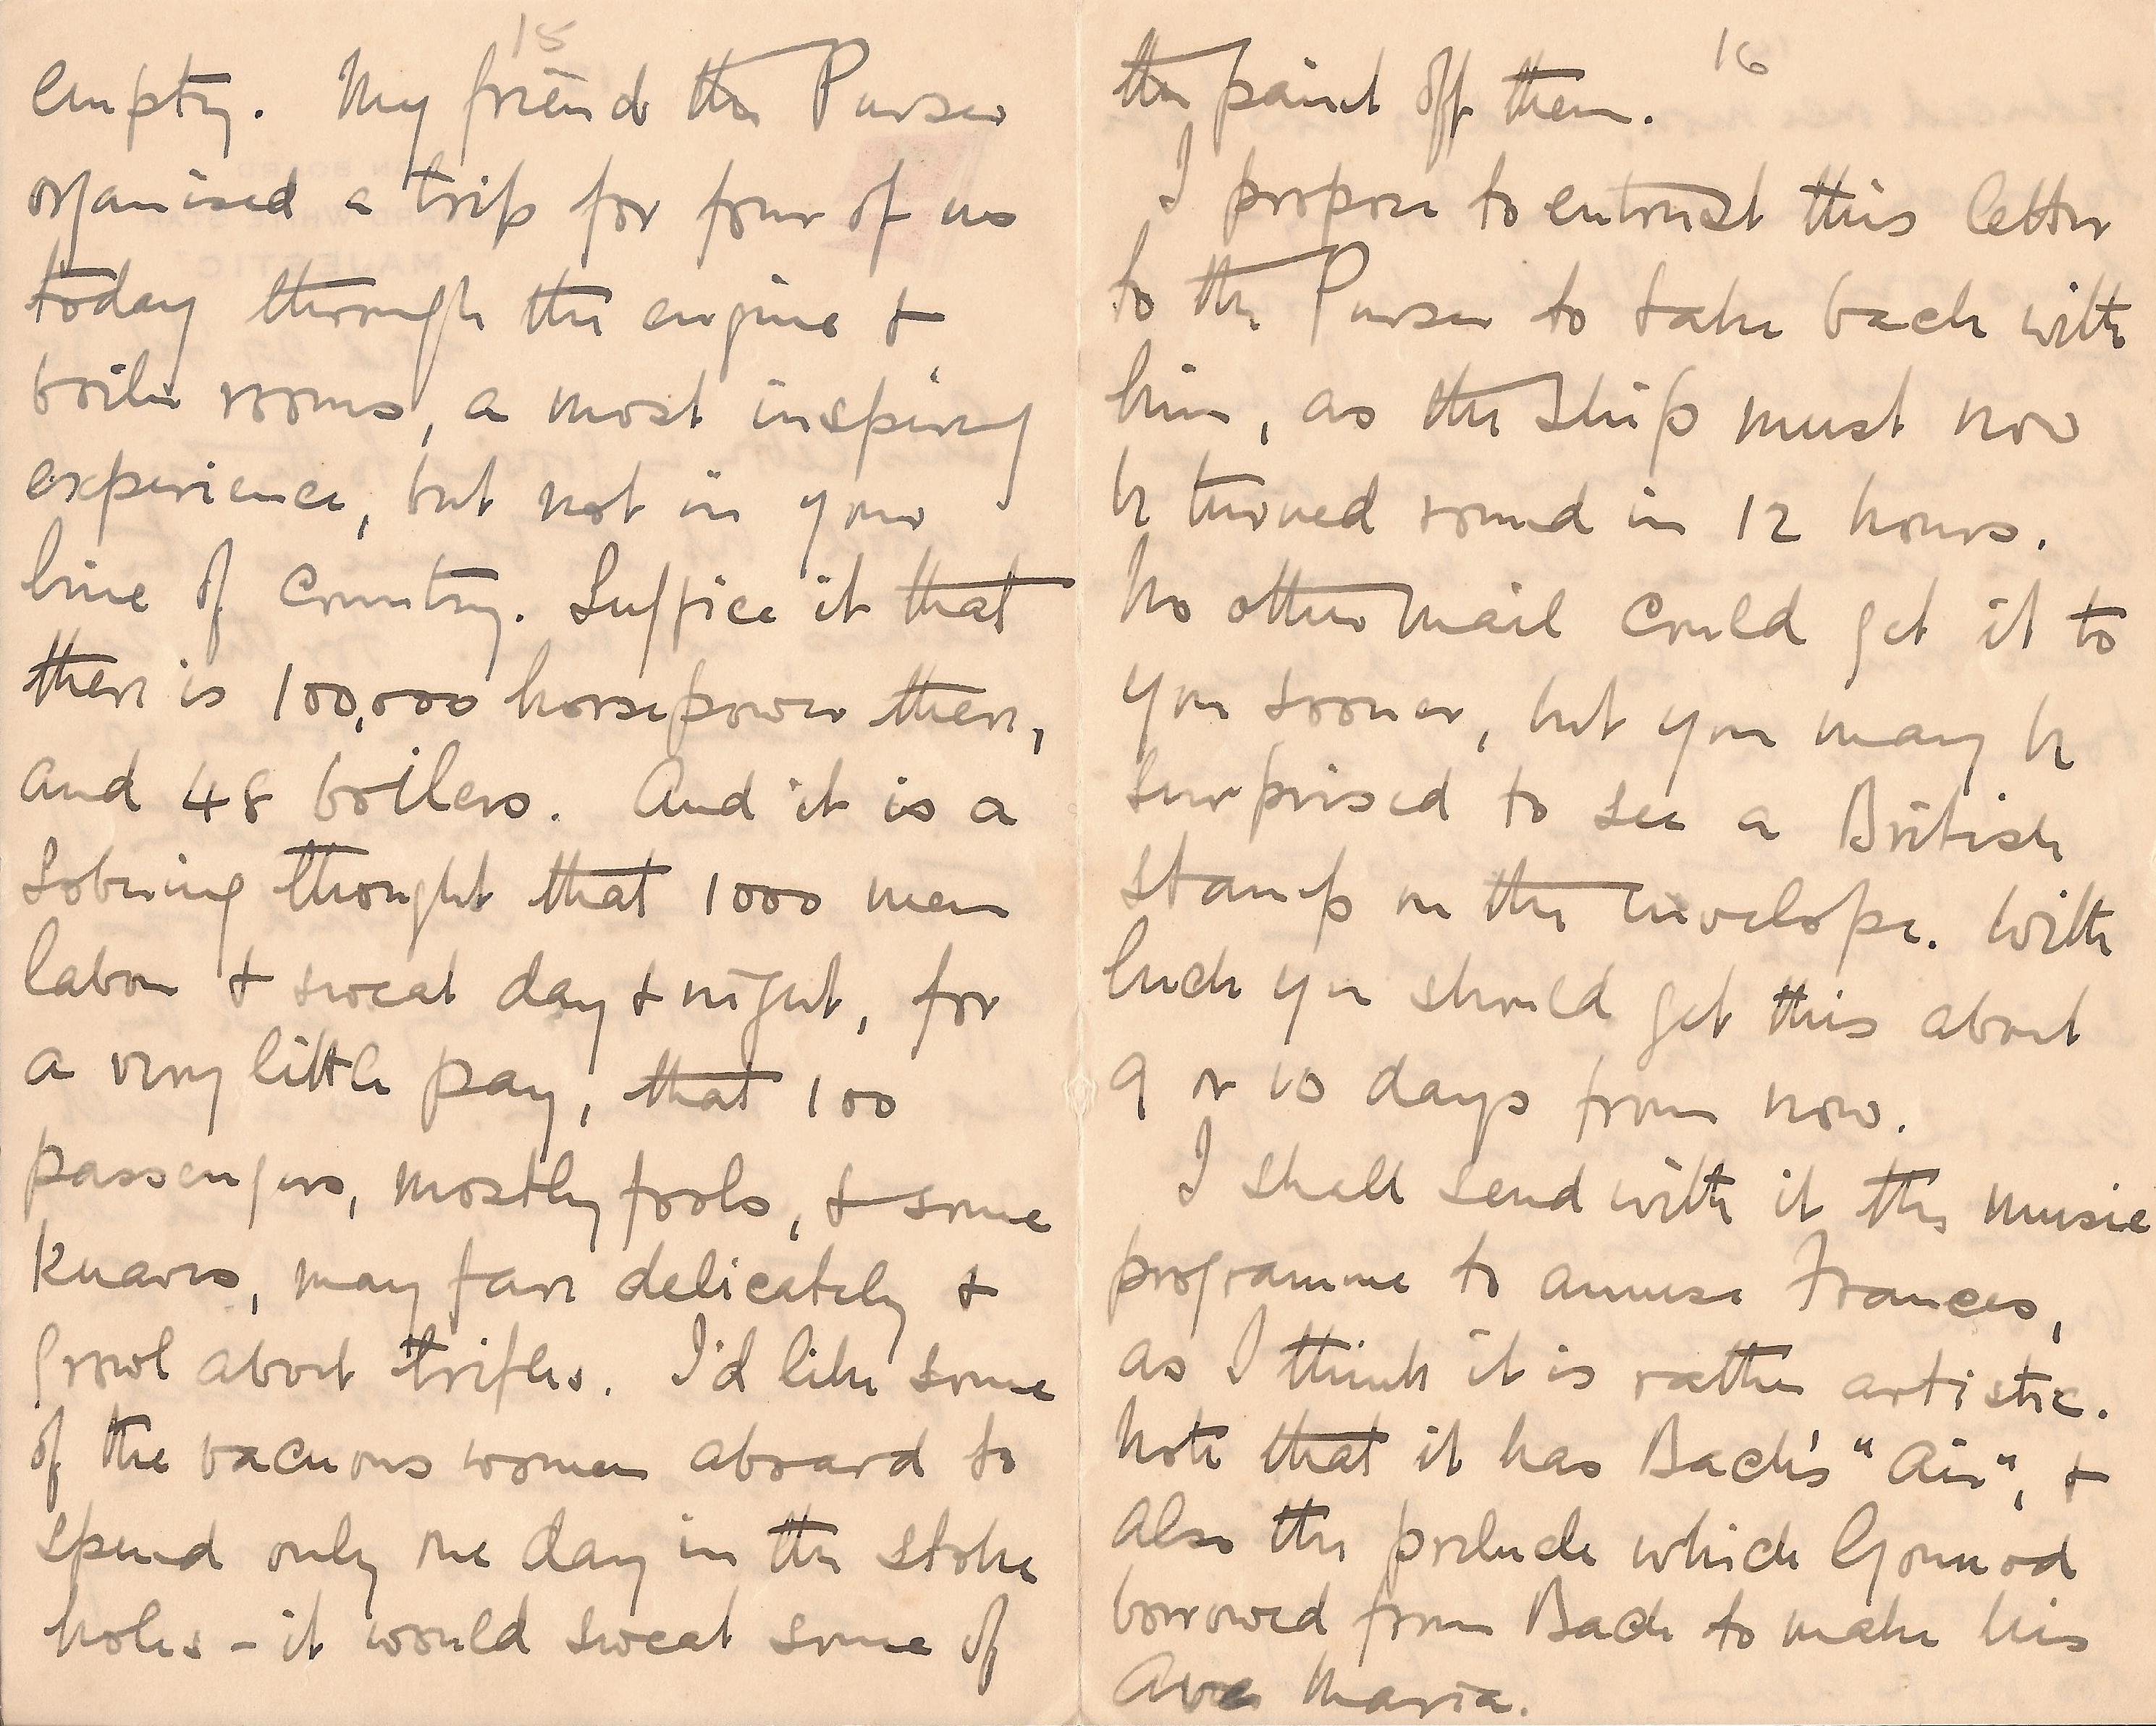 15
empty. My friend the Purser
organised a trip for four of us
today through the engine &
boiler rooms, a most inspiring
experience, but not in your
line of country. Suffice it that
there is 100,000 horsepower there,
and 48 boilers. And it is a
sobering thought that 1000 men
labour & sweat day & night, for
a very little pay, that 100
passengers, mostly fools, & some
knaves, may fare delicately &
growl about trifles. I'd like some
of the vacuous women aboard to
spend only one day in the stoke
holes - it would sweat some of
16
the paint off them.
I propose to entrust this letter
to the Purser to take back with
him, as the ship must now
be turned round in 12 hours.
No other mail could get it to
you sooner, but you may be
surprised to see a British
stamp on the envelope. With
luck you should get this about
9 or 10 days from now.
I shall send with it the music
programme to amuse Frances,
as I think it is rather artistic.
Note that it has Bach's "Air", &
also the prelude which Gounod
borrowed from Bach to make his
Ave Maria.